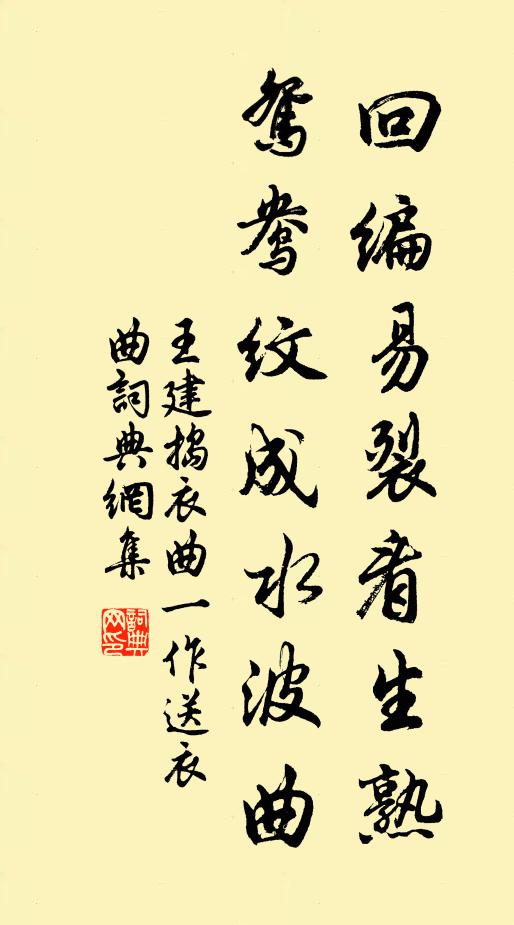 回编易裂看生熟
鸳鸯纹成水波曲
王建捣衣曲一作送衣
曲詞典網集
詞典
网印